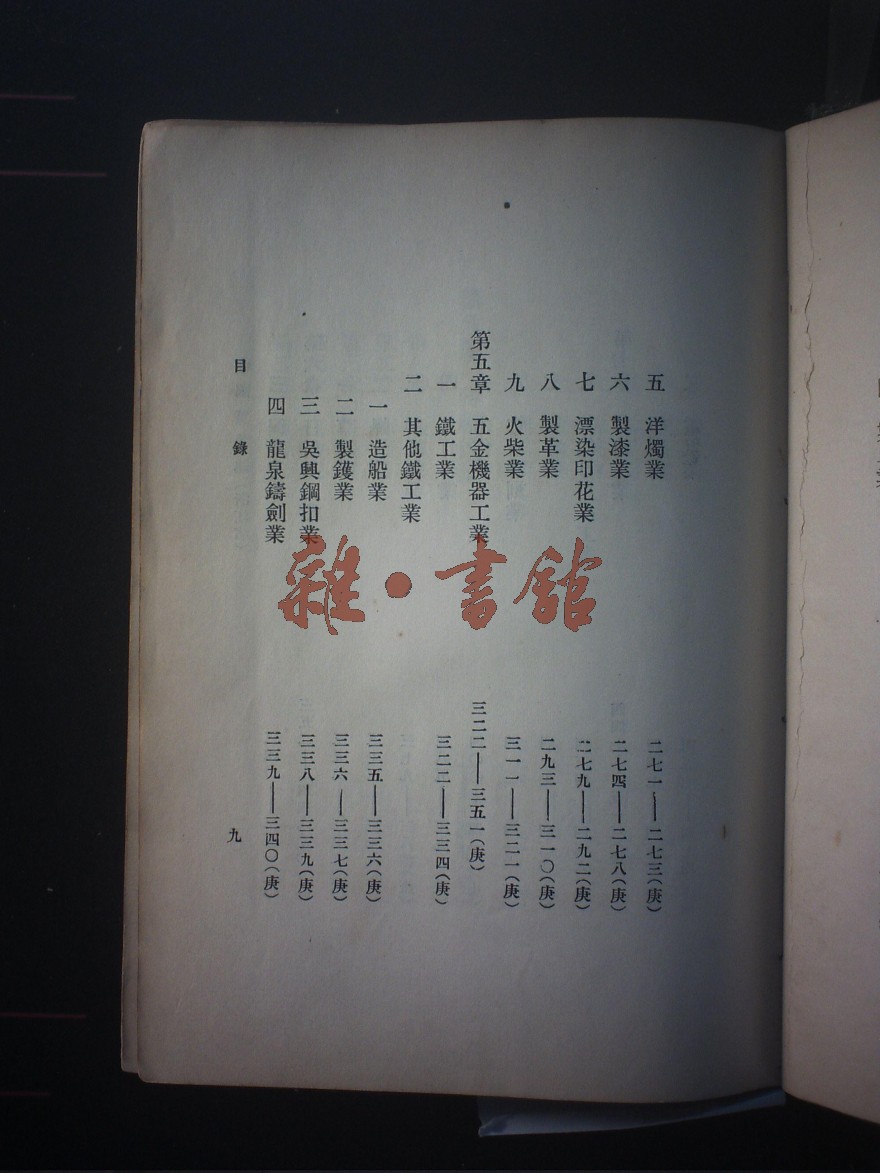 五　洋燭業　二七一——二七三(庚)
六　製漆業　二七四——二七八(庚)
七　漂染印花業　二七九——二九二(庚)
八　製革業　二九三——三一〇(庚)
九　火柴業　三一一——三二一(庚)
第五章　五金機器工業　三二二——三五一(庚)
一　鐵工業　三二二——三三四(庚)
二　其他鐵工業
一　造船業　三三五——三三六(庚)
二　製鑊業　三三六——三三七(庚)
三　吳興鋼扣業　三三八——三三九(庚)
四　龍泉鑄劍業　三三九——三四〇(庚)
目錄　九
雜·書館